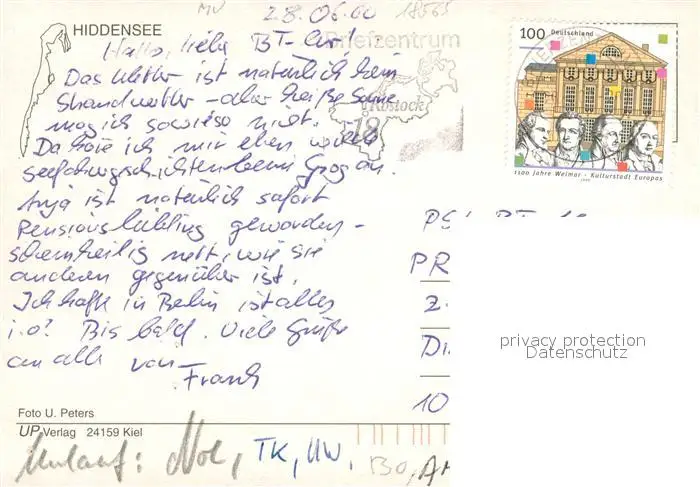 MV 28.06.00 18565
HIDDENSEE
Hallo, liebe BT-ler!
Briefzentrum
Das Wetter ist natürlich kein
Strandwetter – aber heiße Sonne
mag ich sowieso nicht.
Rostock
18
Da höre ich mir eben
beim Grog an.
Anja ist natürlich sofort
Pensionsliebling geworden –
scheinheilig nett, wie sie
anderen gegenüber ist.
Ich hoffe in Berlin ist alles
i.o? Bis bald. Viele Grüße
an alle von
Frank
100 Deutschland
1100 Jahre Weimar · Kulturstadt Europas
1999
PR
2.
Di
10
privacy protection
Datenschutz
Foto U. Peters
UP-Verlag 24159 Kiel
Umlauf: TK, UW, BO,